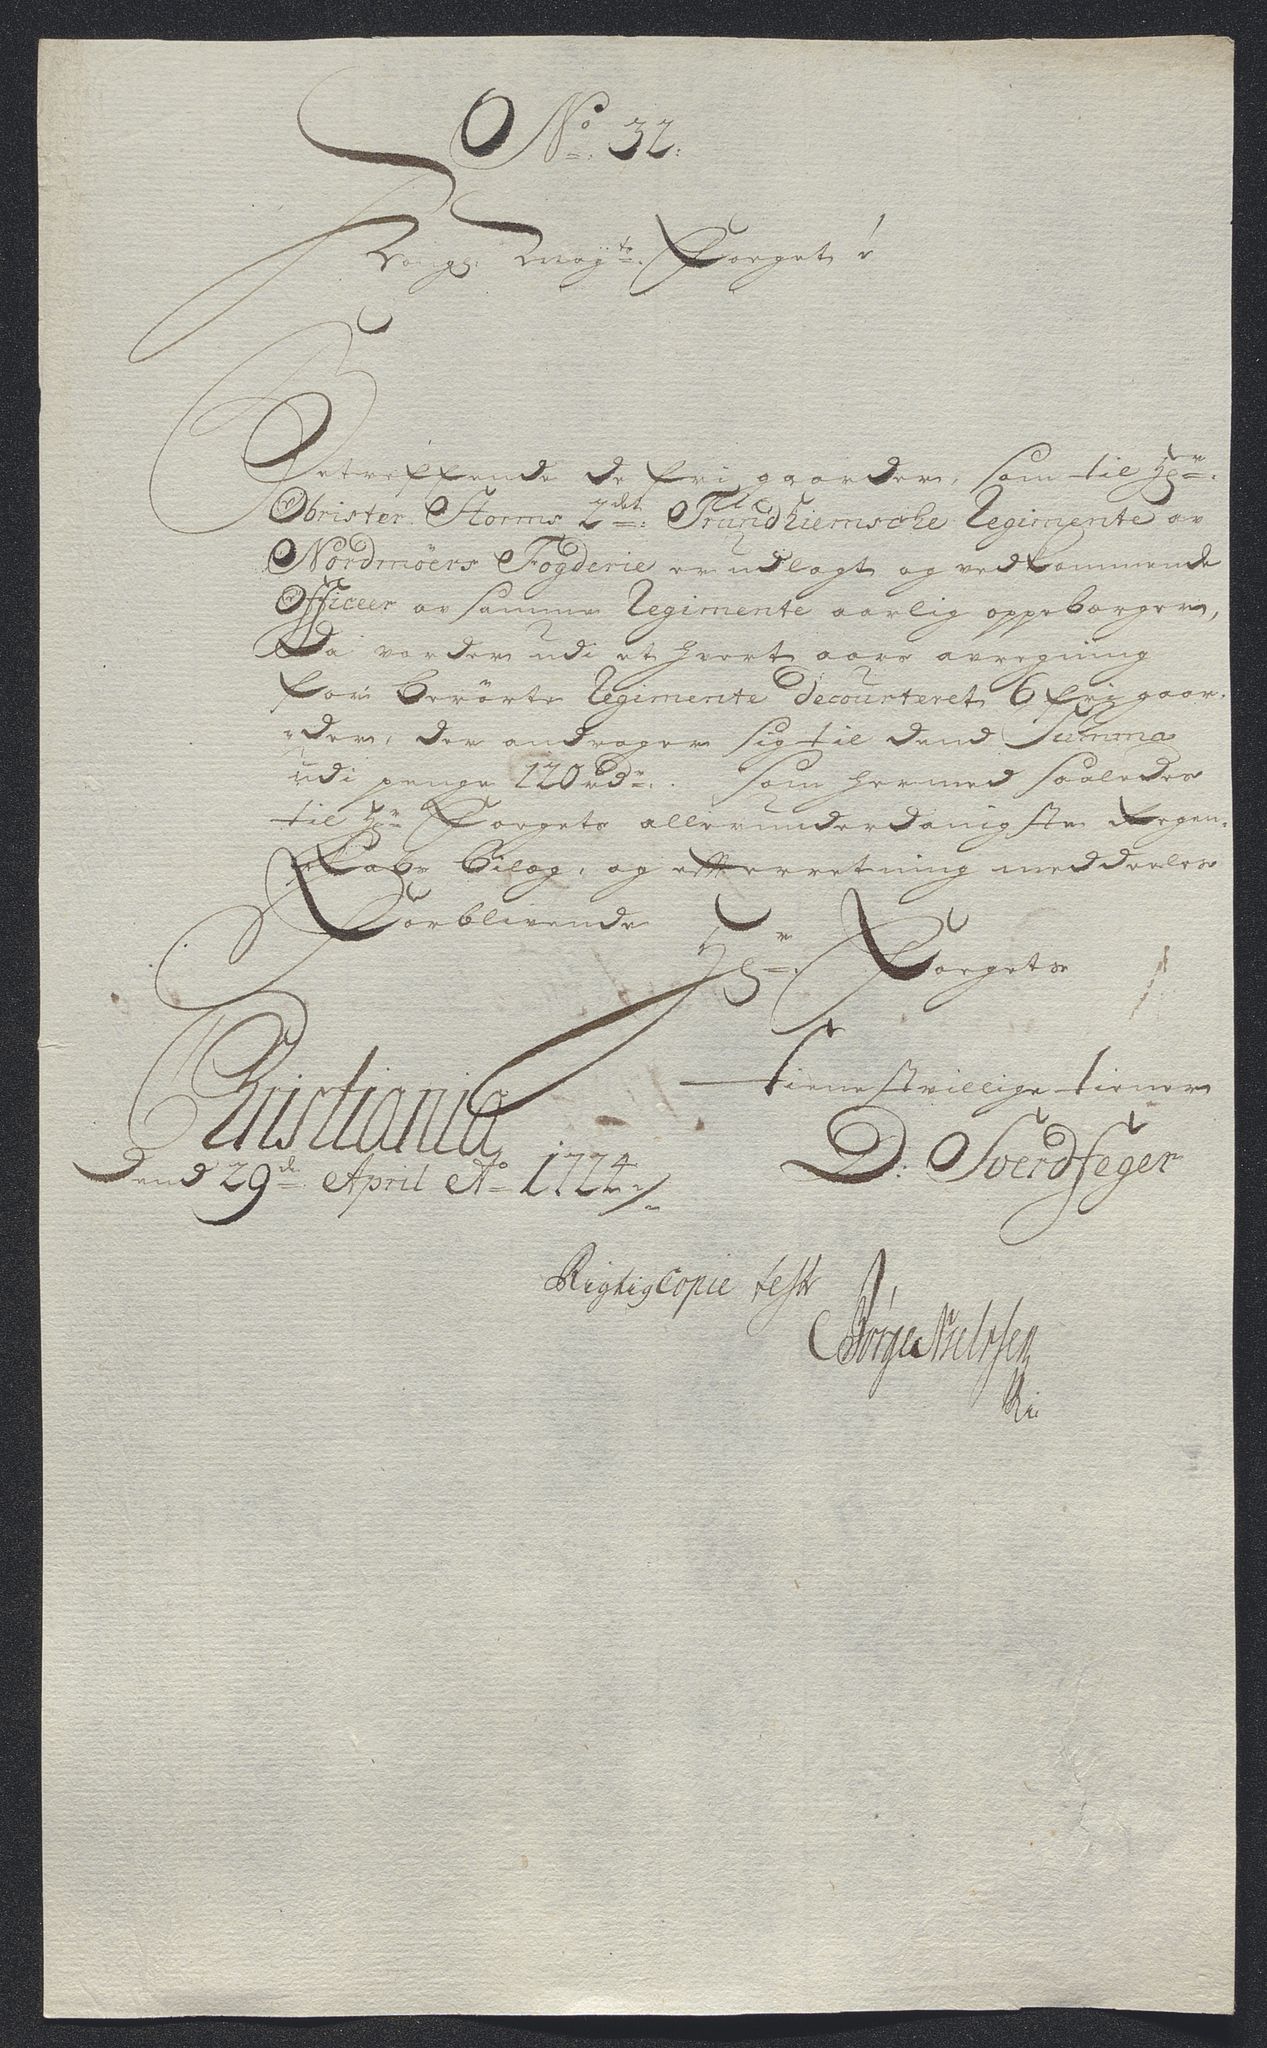 No 32.
Kongl: Mayts Foeget
Betreffende de fri gaarder, som til Hr.
Obrister Storms 2det Trundhiemsche Regimente av
Nordmöers Fogderie er udlagt og vedkommende
Officeer av samme Regimente aarlig oppebærger,
Da vorder udi et hvert aars avregning
for berörte Regimente decourteret 6 fri gaar-
der, der andrager sig til dend Summa
udi penge 120 rdr. som hermed saaledes
til Hr Foegets allerunderdanigste Regen-
skabs bilag, og efterretning meddeeles
Forblivende
Hr. Foegets
tienestvillige tiener
Christiania
Dend 29de April Ao 1724
D: Sverdfeger
Rigtig Copie test
Börge Nielssen